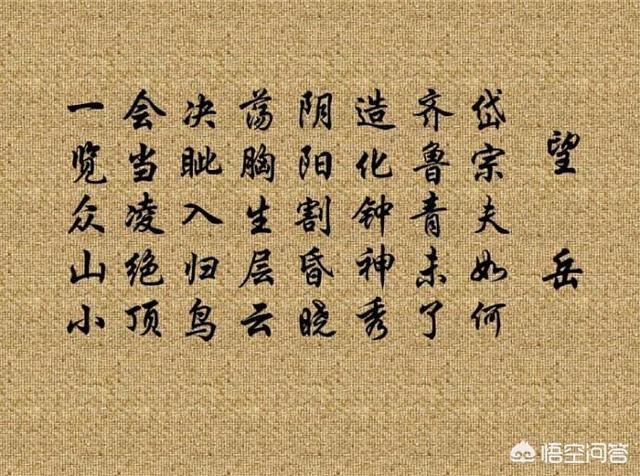 望岳
岱宗夫如何
齐鲁青未了
造化钟神秀
阴阳割昏晓
荡胸生层云
决眦入归鸟
会当凌绝顶
一览众山小
悟空问答